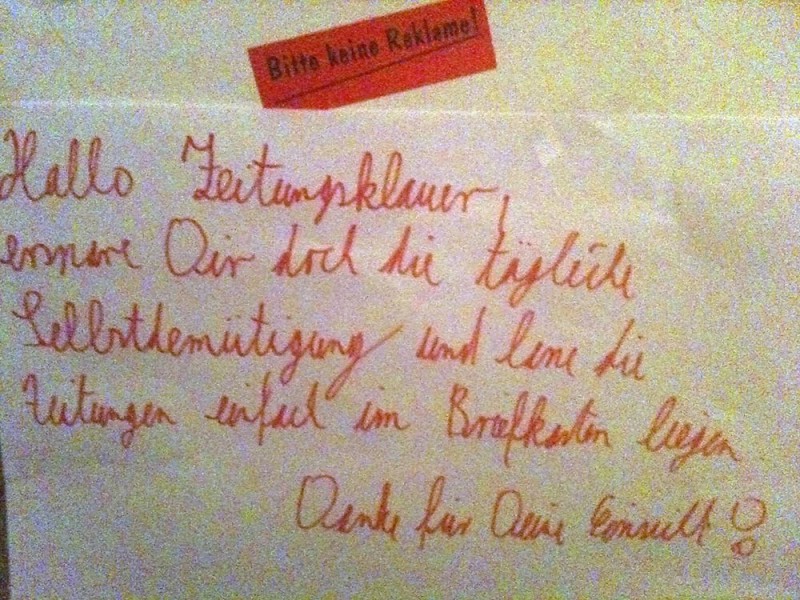 Bitte keine Reklame!
Hallo Zeitungsklauer,
erspare Dir doch die tägliche
Selbstdemütigung und lasse die
Zeitungen einfach im Briefkasten liegen
Danke für Deine Einsicht!